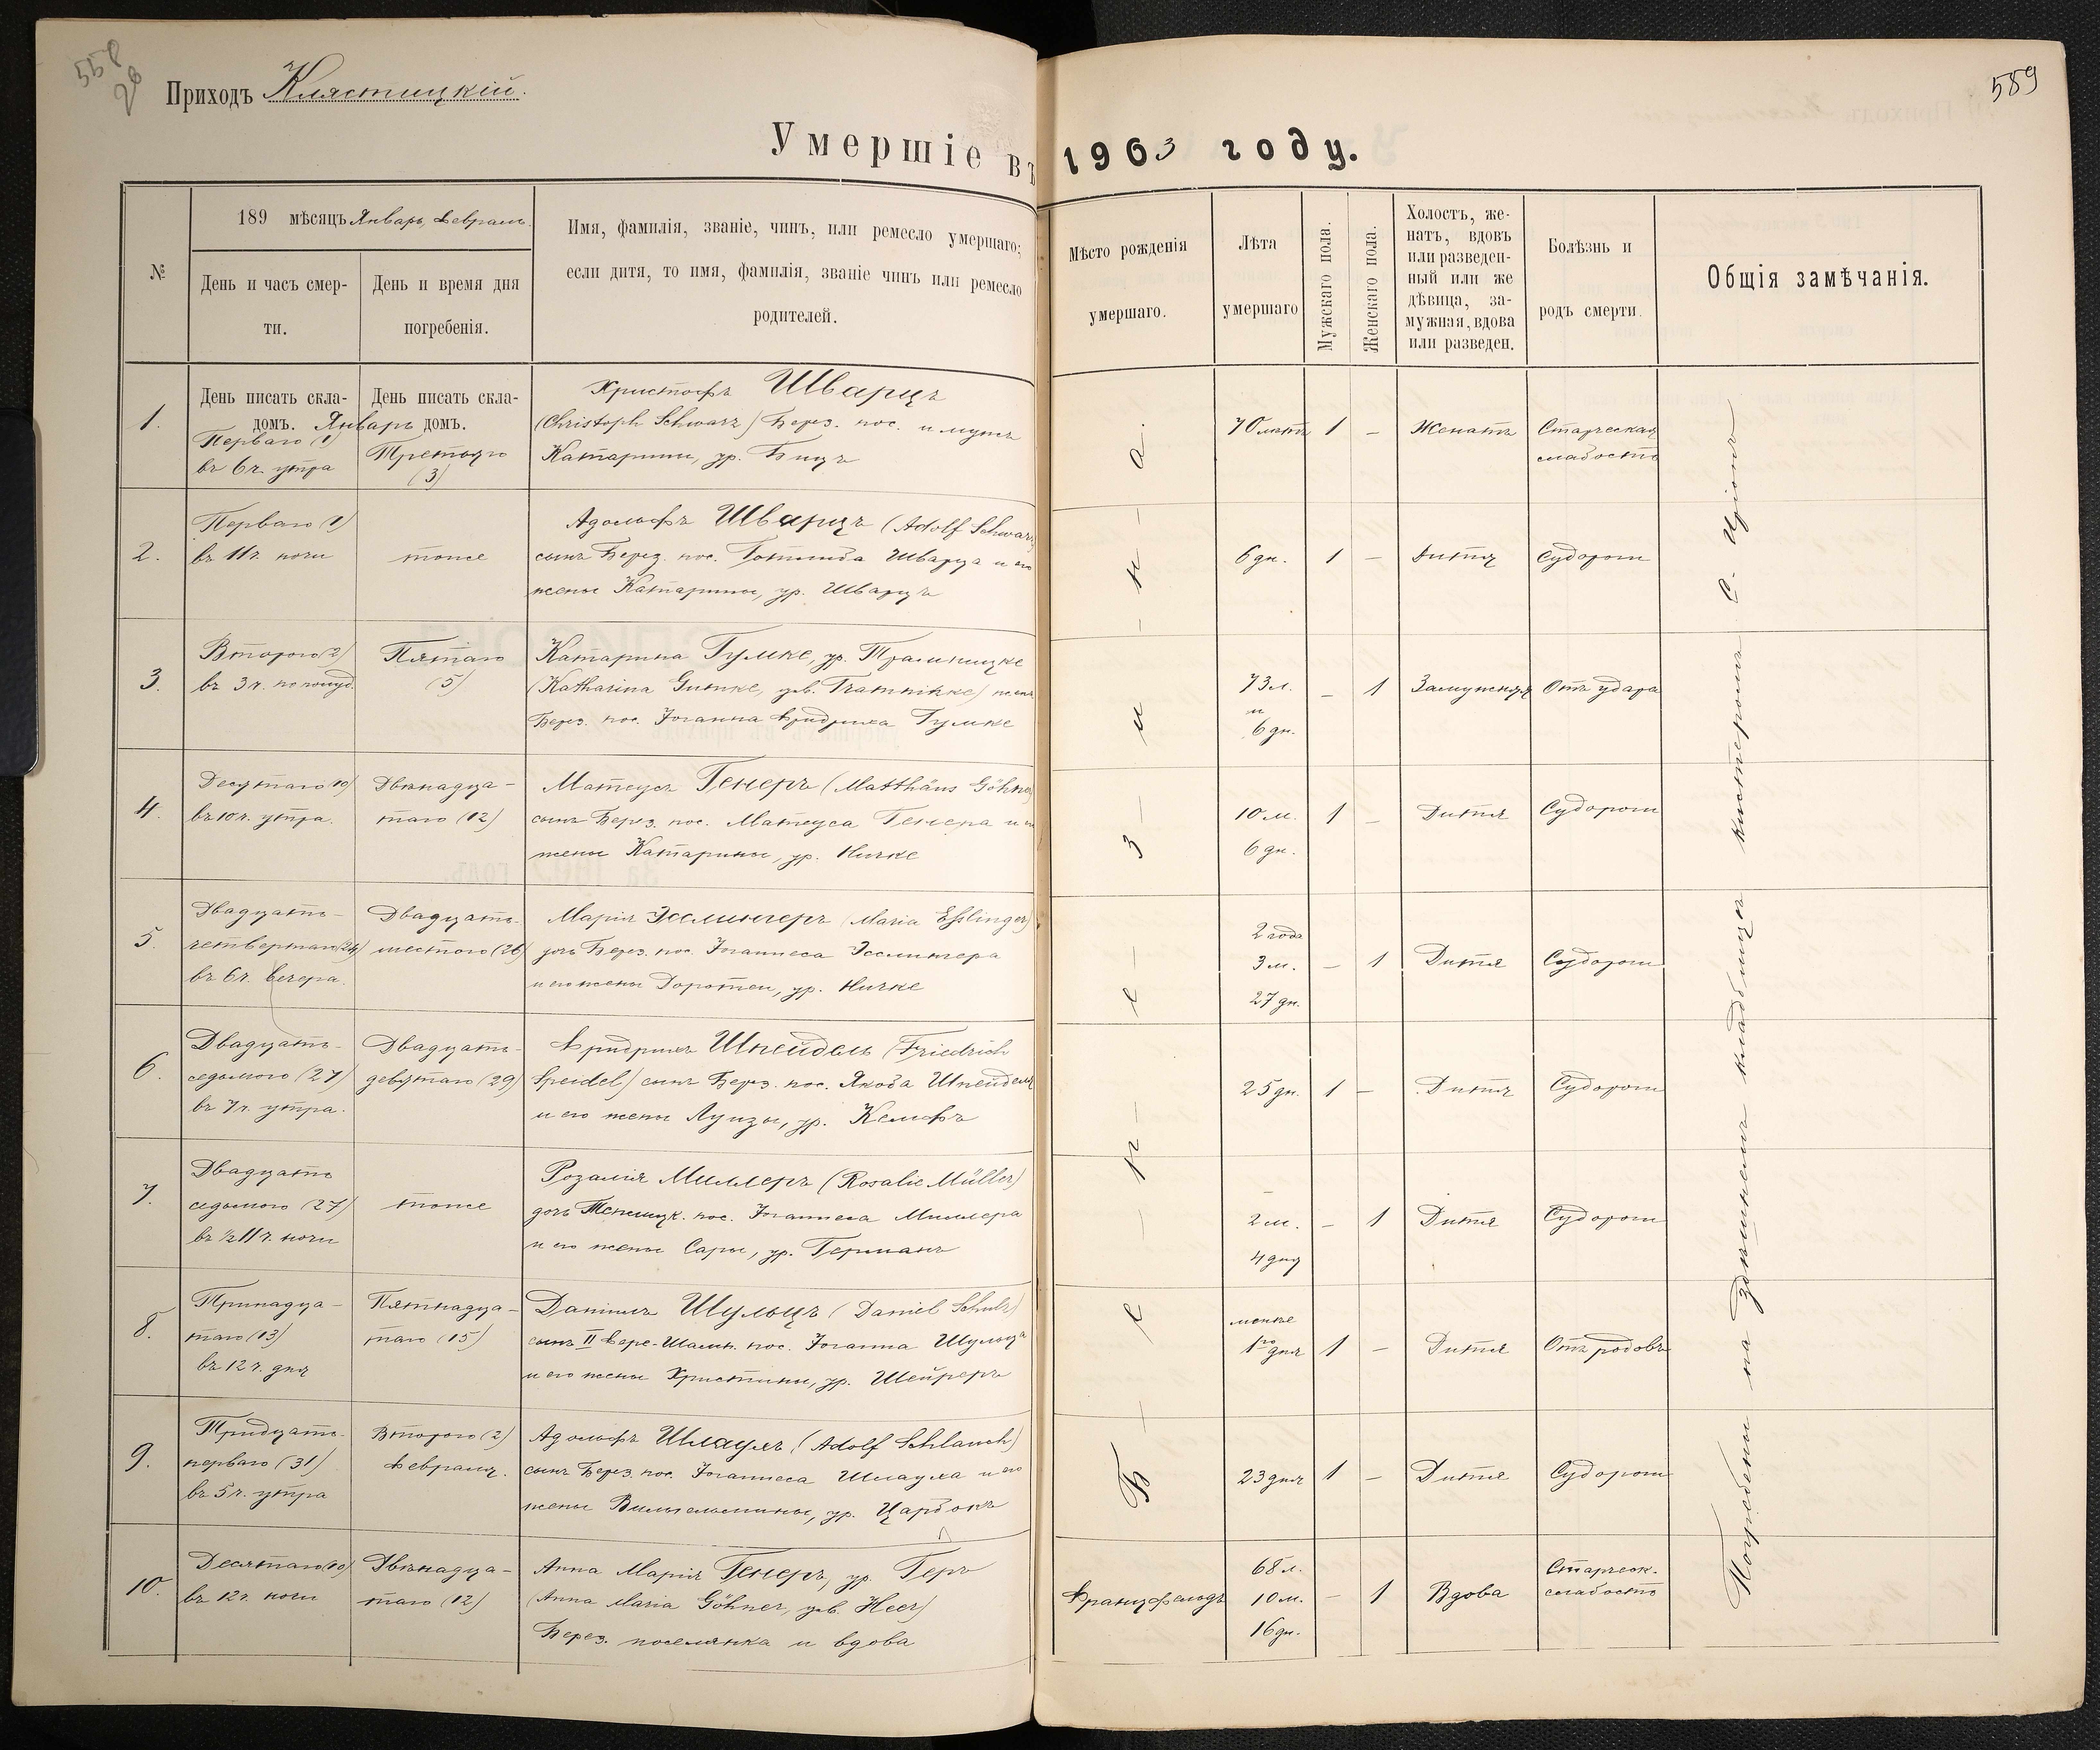 558
26
589
Приходъ Клястицкій.
Умершіе въ 1903 году.
№
189 мѣсяцъ Январь, Февраль.
День и часъ смер-
ти.
День и время дня
погребенія.
Имя, фамилія, званіе, чинъ, или ремесло умершаго;
если дитя, то имя, фамилія, званіе чинъ или ремесло
родителей.
Мѣсто рожденія
умершаго.
Лѣта
умершаго
Мужскаго пола.
Женскаго пола.
Холостъ, же-
натъ, вдовъ
или разведен-
ный или же
дѣвица, за-
мужняя, вдова
или разведен.
Болѣзнь и
родъ смерти.
Общія замѣчанія.
1.
День писать скла-
домъ. Январь
Перваго (1)
въ 6 ч. утра
День писать скла-
домъ.
Третьяго
(3)
Христофъ Шварцъ
(Christoph Schwarz) Берез. пос. и мужъ
Катарины, ур. Бицъ
70 лѣтъ
1
–
Женатъ
Старческая
слабость
2.
Перваго (1)
въ 11 ч. ночи
тоже
Адольфъ Шварцъ (Adolf Schwarz)
сынъ Берез. пос. Готлиба Шварца и его
жены Катарины, ур. Шварцъ
6 дн.
1
–
Дитя
Судороги
3.
Второго (2)
въ 3 ч. пополуд.
Пятаго
(5)
Катарина Гумке, ур. Трамницке
(Katharina Gumke, geb. Tramnitzke) жена
Берез. пос. Іоганна Фридриха Гумке
73 л.
и
6 дн.
–
1
Замужняя
Отъ удара
4.
Десятаго (10)
въ 10 ч. утра.
Двѣнадца-
таго (12)
Матеусъ Генеръ (Matthäus Göhner)
сынъ Берез. пос. Матеуса Генера и его
жены Катарины, ур. Ничке
10 м.
6 дн.
1
–
Дитя
Судороги
5.
Двадцать-
четвертаго (24)
въ 6 ч. вечера.
Двадцать-
шестого (26)
Марія Эслингеръ (Maria Eßlinger)
дочь Берез. пос. Іоганнеса Эсслингера
и его жены Доротеи, ур. Ничке
2 года
3 м.
27 дн.
–
1
Дитя
Судороги
6.
Двадцать-
седьмого (27)
въ 7 ч. утра.
Двадцать-
девятаго (29)
Фридрихъ Шпейдель (Friedrich
Speidel) сынъ Берез. пос. Якоба Шпейделя
и его жены Луизы, ур. Кельфъ
25 дн.
1
–
Дитя
Судороги
7.
Двадцать
седьмого (27)
въ ½ 11 ч. ночи
тоже
Розалія Миллеръ (Rosalie Müller)
дочь пос. Іоганнеса Миллера
и его жены Сары, ур. Германъ
2 м.
4 дня
–
1
Дитя
Судороги
8.
Тринадца-
таго (13)
въ 12 ч. дня
Пятнадца-
таго (15)
Даніилъ Шульцъ (Daniel Schulz)
сынъ II Фере-Шамп. пос. Іоганна Шульца
и его жены Христины, ур. Шейреръ
менѣе
1го дня
1
–
Дитя
Отъ родовъ
9.
Тридцать-
перваго (31)
въ 5 ч. утра
Второго (2)
Февраля.
Адольфъ Шлаухъ (Adolf Schlauch)
сынъ Берез. пос. Іоганнеса Шлауха и его
жены Вильгельмины, ур. Царбокъ
23 дня
1
–
Дитя
Судороги
10.
Десятаго (10)
въ 12 ч. ночи
Двѣнадца-
таго (12)
Анна Марія Генеръ, ур. Геръ
(Anna Maria Göhner, geb. Heer)
Берез. поселянка и вдова
Францфельдъ
68 л.
10 м.
16 дн.
–
1
Вдова
Старческ.
слабость
Б – е – р – е – з – и – н – а.
Погребены на здѣшнемъ кладбищѣ кистеромъ